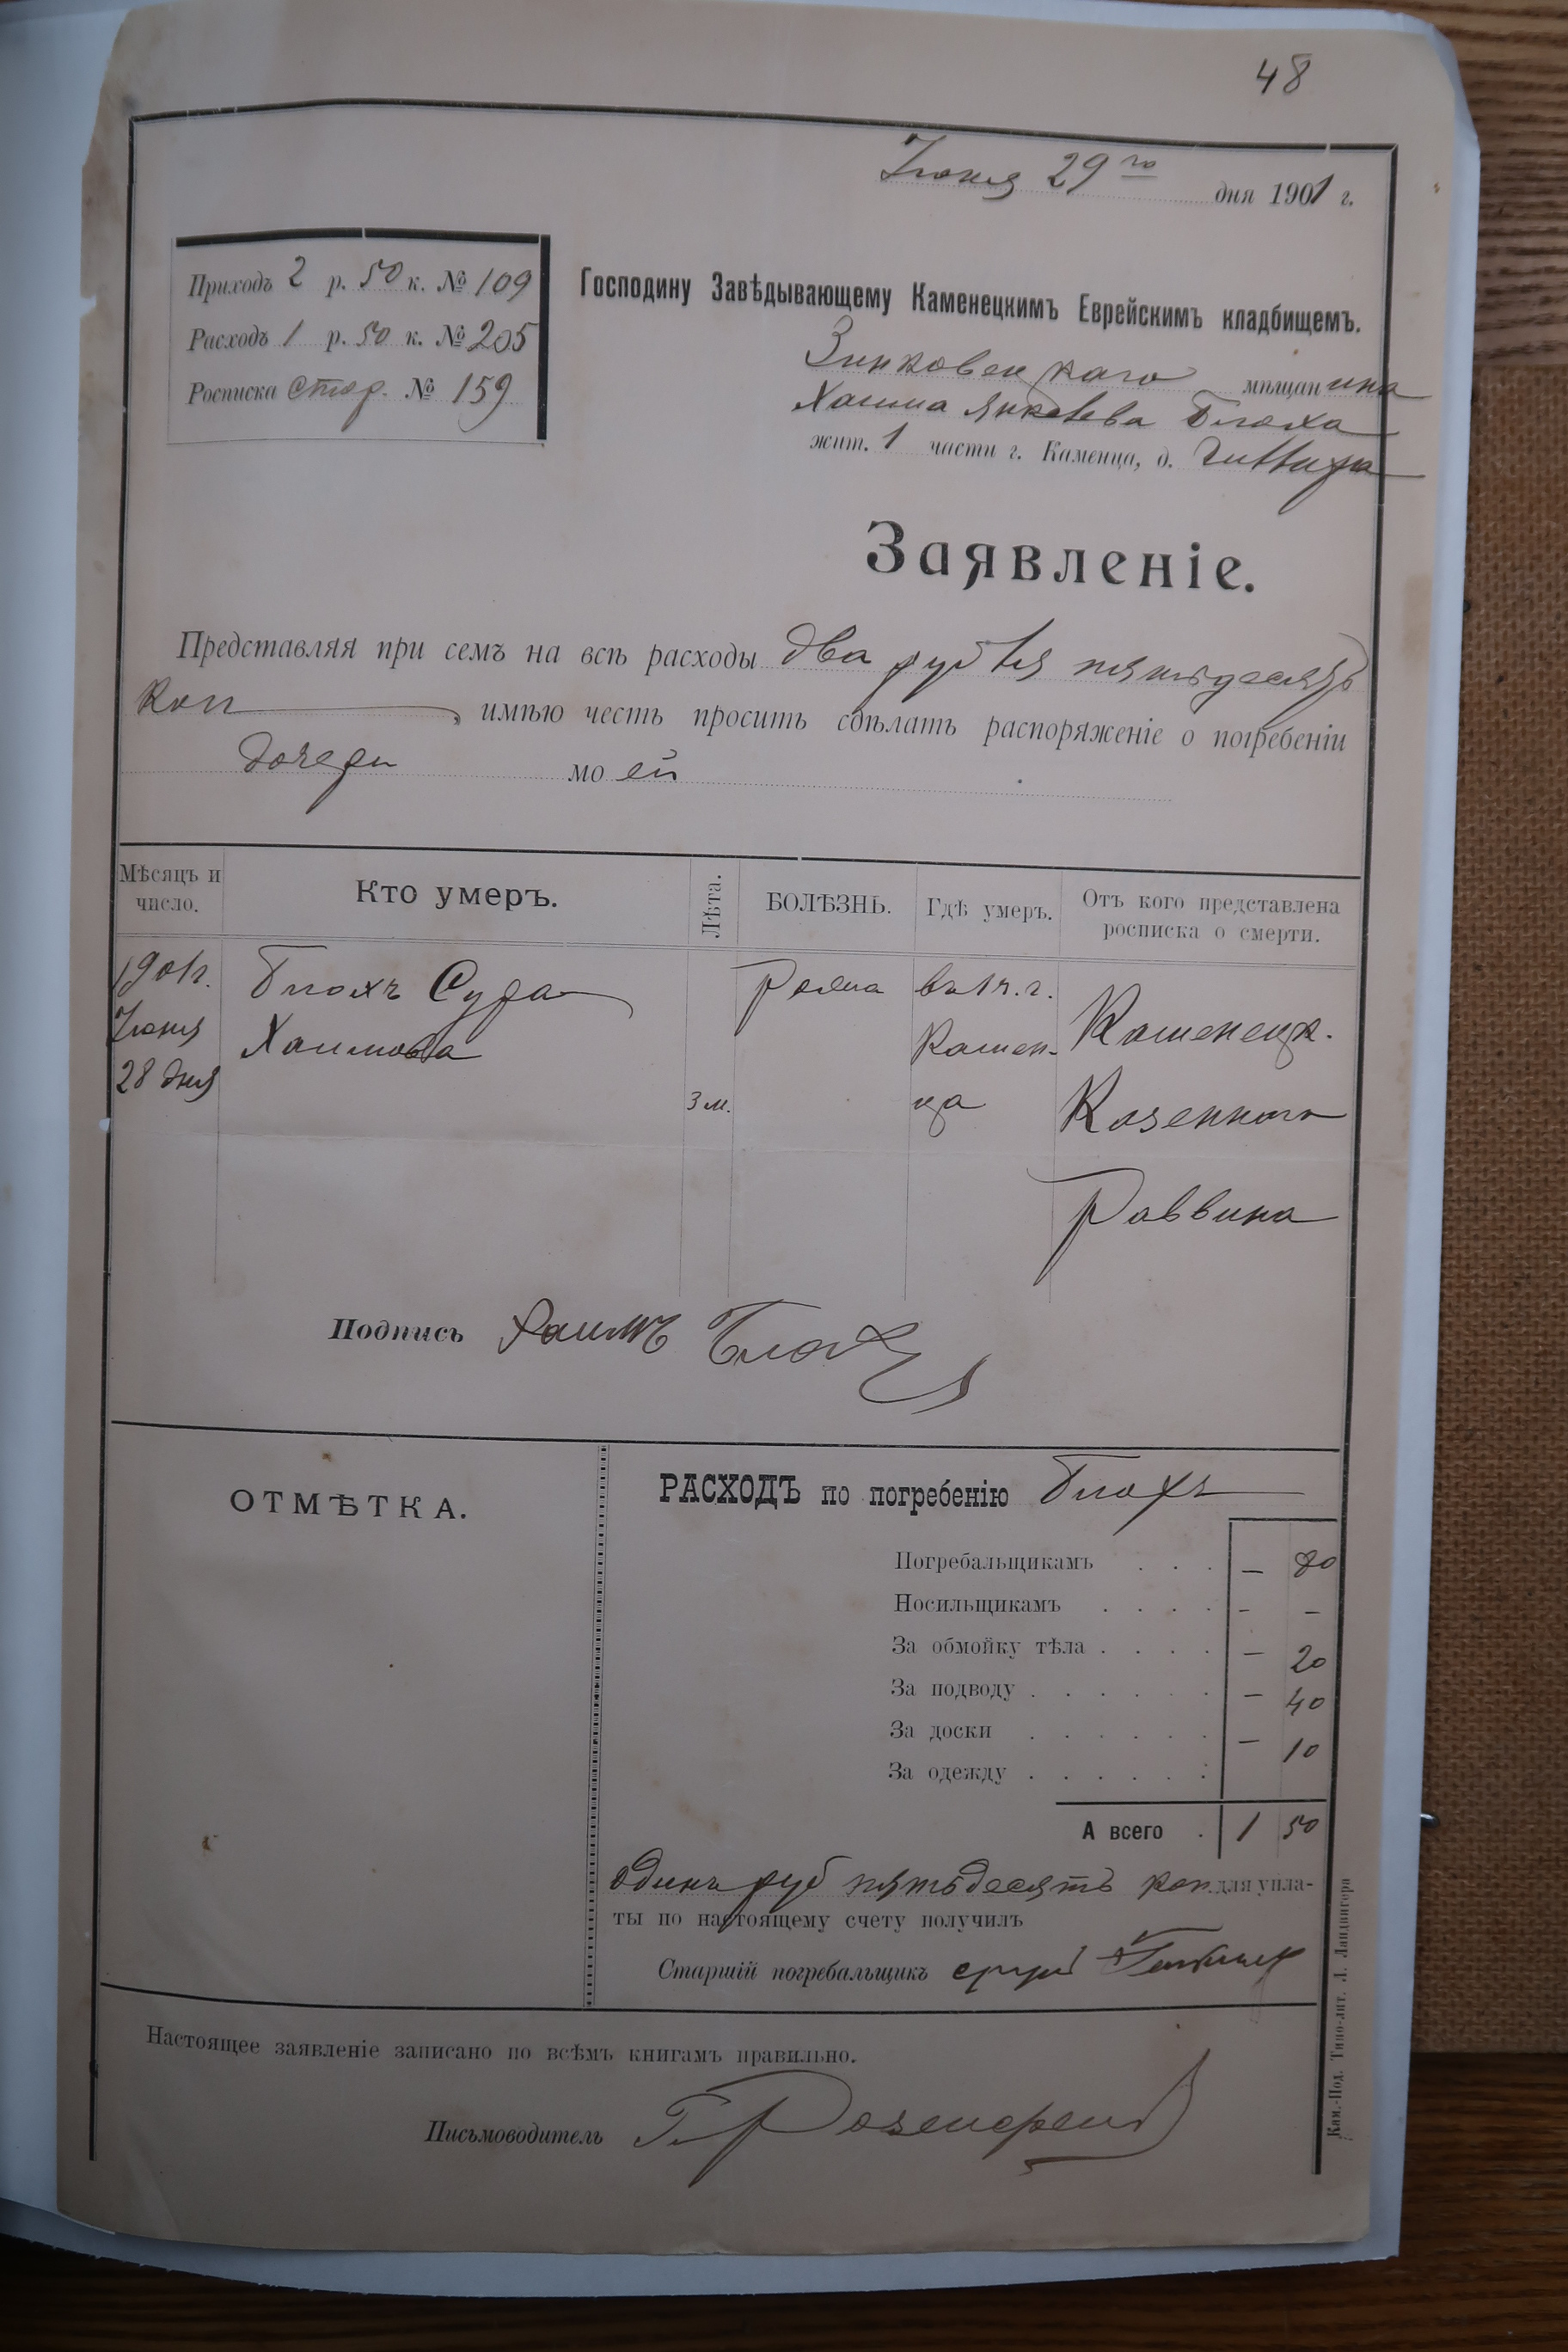 48
Іюня 29 го дня 1901 г.
Приходъ 2 р. 50 к. № 109
Расходъ 1 р. 50 к. № 205
Росписка стор. № 159
Господину Завѣдывающему Каменецкимъ Еврейскимъ кладбищемъ.
Зинковецкаго мѣщанина
Хаима Янкелева Блоха
жит. 1 части г. Каменца, д.
Заявленіе.
Представляя при семъ на всѣ расходы два рубля пятьдесятъ
коп , имѣю честь просить сдѣлать распоряженіе о погребеніи
дочери моей
Мѣсяцъ и число. Кто умеръ. Лѣта. БОЛѢЗНЬ. Гдѣ умеръ. Отъ кого представлена росписка о смерти.
1901г. Блохъ Сура въ 1 ч. г. Каменецк.
Іюня Хаимова Камен-
28 дня 3 м. ца Казеннаго
Раввина
Подпись Хаимъ Блохъ
ОТМѢТКА.
РАСХОДЪ по погребенію Блохъ
Погребальщикамъ . . . — 80
Носильщикамъ . . . . - –
За обмойку тѣла . . . . — 20
За подводу . . . . . . — 40
За доски . . . . . . — 10
За одежду . . . . . .
А всего . 1 50
одинъ руб пятьдесятъ коп. для упла-
ты по настоящему счету получилъ
Старшій погребальщикъ
Настоящее заявленіе записано по всѣмъ книгамъ правильно.
Письмоводитель Г. Розенфельд
Кам.-Под. Типо-лит. Л. Ландвигера